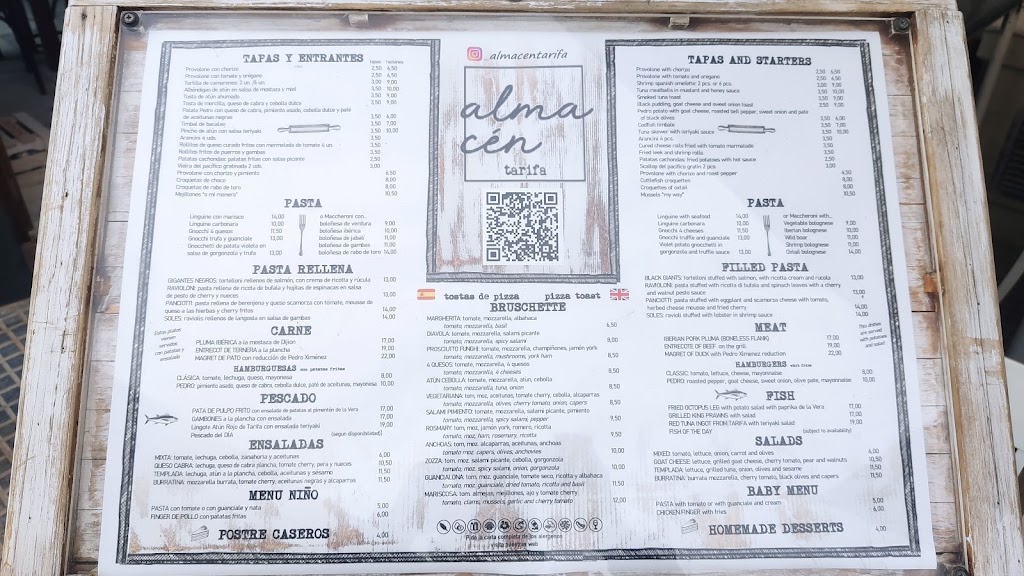 TAPAS Y ENTRANTES
tapas raciones
Provolone con chorizo 2,50 6,50
Provolone con tomate y orégano 2,50 6,50
Tortilla de camarones: 2 un. /6 un. 3,00 9,00
Albóndigas de atún en salsa de mostaza y miel 3,50 10,00
Tosta de atún ahumado 3,50 9,00
Tosta de morcilla, queso de cabra y cebolla dulce 2,50 9,00
Patata Pedro con queso de cabra, pimiento asado, cebolla dulce y paté
de aceitunas negras 3,50 6,00
Timbal de bacalao 3,50 7,00
Pincho de atún con salsa teriyaki 3,50 10,00
Arancini 4 uds. 3,50
Rollitos de queso curado fritos con mermelada de tomate 4 un. 3,50
Rollitos fritos de puerros y gambas 3,50
Patatas cachondas: patatas fritas con salsa picante 2,50
Vieira del pacífico gratinada 2 uds. 3,00
Provolone con chorizo y pimiento 6,50
Croquetas de choco 8,00
Croquetas de rabo de toro 8,00
Mejillones "a mi manera" 10,50
PASTA
Linguine con marisco 14,00
Linguine carbonara 10,00
Gnocchi 4 quesos 11,50
Gnocchi trufa y guanciale 13,00
Gnocchetti de patata violeta en
salsa de gorgonzola y trufa 13,00
o Maccheroni con...
boloñesa de verdura 9,00
boloñesa ibérica 10,00
boloñesa de jabalí 11,00
boloñesa de gambas 11,00
boloñesa de rabo de toro 14,00
PASTA RELLENA
GIGANTES NEGROS: tortelloni rellenos de salmón, con crema de ricotta y rúcula 13,00
RAVIOLONI: pasta rellena de ricotta de bufala y hojitas de espinacas en salsa
de pesto de cherry y nueces 13,00
PANCIOTTI: pasta rellena de berenjena y queso scamorza con tomate, mousse de
queso a las hierbas y cherry fritos 14,00
SOLES: raviolis rellenos de langosta en salsa de gambas 14,00
CARNE
Estos platos
vienen
servidos
con patatas y
ensalada
PLUMA IBÉRICA a la mostaza de Dijon 17,00
ENTRECOT DE TERNERA a la plancha 19,00
MAGRET DE PATO con reducción de Pedro Ximénez 22,00
HAMBURGUESAS con patatas fritas
CLÁSICA: tomate, lechuga, queso, mayonesa 8,00
PEDRO: pimiento asado, queso de cabra, cebolla dulce, paté de aceitunas, mayonesa 10,00
PESCADO
PATA DE PULPO FRITO con ensalada de patatas al pimentón de la Vera 17,00
GAMBONES a la plancha con ensalada 17,00
Lingote Atún Rojo de Tarifa con ensalada teriyaki 19,00
Pescado del DIA (segun disponibilidad)
ENSALADAS
MIXTA: tomate, lechuga, cebolla, zanahoria y aceitunas 6,00
QUESO CABRA: lechuga, queso de cabra plancha, tomate cherry, pera y nueces 10,50
TEMPLADA: lechuga, atún a la plancha, cebolla, aceitunas y sésamo 11,50
BURRATINA: mozzarella burrata, tomate cherry, aceitunas negras y alcaparras 11,50
MENU NIÑO
PASTA con tomate o con guanciale y nata 5,00
FINGER DE POLLO con patatas fritas 6,00
POSTRE CASEROS 4,00
_almacentarifa
alma
cén
tarifa
tostas de pizza pizza toast
BRUSCHETTE
MARGHERITA: tomate, mozzarella, albahaca
tomato, mozzarella, basil 6,50
DIAVOLA: tomate, mozzarella, salami picante
tomato, mozzarella, spicy salami 8,50
PROSCIUTTO FUNGHI: tomate, mozzarella, champiñones, jamón york
tomato, mozzarella, mushrooms, york ham 8,50
4 QUESOS: tomate, mozzarella, 4 quesos
tomato, mozzarella, 4 cheeses 8,50
ATÚN CEBOLLA: tomate, mozzarella, atún, cebolla
tomato, mozzarella, tuna, onion 8,50
VEGETARIANA: tom, moz, aceitunas, tomate cherry, cebolla, alcaparras
tomato, mozzarella, olives, cherry tomato, onion, capers 8,50
SALAMI PIMIENTO: tomate, mozzarella, salami picante, pimiento
tomato, mozzarella, spicy salami, pepper 9,50
ROSMARY: tom, moz, jamón york, romero, ricotta
tomato, moz, ham, rosemary, ricotta 9,50
ANCHOAS: tom, moz, alcaparras, aceitunas, anchoas
tomato moz, capers, olives, anchovies 10,50
ZOZZA: tom, moz, salami picante, cebolla, gorgonzola
tomato, moz, spicy salami, onion, gorgonzola 10,50
GUANCIALONA: tom, moz, guanciale, tomate seco, ricotta y albahaca
tomato, moz, guanciale, dried tomato, ricotta and basil 11,50
MARISCOSA: tom, almejas, mejillones, ajo y tomate cherry
tomato, clams, mussels, garlic and cherry tomato 12,00
Pide la carta completa de los alergenos
visita nuestra web
TAPAS AND STARTERS
Provolone with chorizo 2,50 6,50
Provolone with tomato and oregano 2,50 6,50
Shrimp spanish omelette: 2 pcs. or 6 pcs. 3,00 9,00
Tuna meatballs in mustard and honey sauce 3,50 10,00
Smoked tuna toast 3,50 9,00
Black pudding, goat cheese and sweet onion toast 2,50 9,00
Pedro potato with goat cheese, roasted bell pepper, sweet onion and pate
of black olives 3,50 6,00
Codfish timbale 3,50 7,00
Tuna skewer with teriyaki sauce 3,50 10,00
Arancini 4 pcs. 3,50
Cured cheese rolls fried with tomato marmalade 3,50
Fried leek and shrimp rolls 3,50
Patatas cachondas: fried potatoes with hot sauce 2,50
Scallop del pacifico gratin 2 pcs. 3,00
Provolone with chorizo and roast pepper 6,50
Cuttlefish croquettes 8,00
Croquettes of oxtail 8,00
Mussels "my way" 10,50
PASTA
Linguine with seafood 14,00
Linguine carbonara 10,00
Gnocchi 4 cheeses 11,50
Gnocchi truffle and guanciale 13,00
Violet potato gnocchetti in
gorgonzola and truffle sauce 13,00
or Maccheroni with...
Vegetable bolognese 9,00
Iberian bolognese 10,00
Wild boar 11,00
Shrimp bolognese 11,00
Oxtail bolognese 14,00
FILLED PASTA
BLACK GIANTS: tortelloni stuffed with salmon, with ricotta cream and rucola 13,00
RAVIOLONI: pasta stuffed with ricotta di bufala and spinach leaves with a cherry
and walnut pesto sauce 13,00
PANCIOTTI: pasta stuffed with eggplant and scamorza cheese with tomato,
herbed cheese mousse and fried cherry 14,00
SOLES: ravioli stuffed with lobster in shrimp sauce 14,00
MEAT
IBERIAN PORK PLUMA (BONELESS FLANK) 17,00
ENTRECOTE OF BEEF on the grill 19,00
MAGRET OF DUCK with Pedro Ximenez reduction 22,00
This dishes
are served
with potatoes
and salad
HAMBURGERS with fries
CLASSIC: tomato, lettuce, cheese, mayonnaise 8,00
PEDRO: roasted pepper, goat cheese, sweet onion, olive pate, mayonnaise 10,00
FISH
FRIED OCTOPUS LEG with potato salad with paprika de la Vera 17,00
GRILLED KING PRAWNS with salad 17,00
RED TUNA INGOT FROM TARIFA with teriyaki salad 19,00
FISH OF THE DAY (subject to availability)
SALADS
MIXED: tomato, lettuce, onion, carrot and olives 6,00
GOAT CHEESE: lettuce, grilled goat cheese, cherry tomato, pear and walnuts 10,50
TEMPLADA: lettuce, grilled tuna, onion, olives and sesame 11,50
BURRATINA: burrata mozzarella, cherry tomato, black olives and capers 11,50
BABY MENU
PASTA with tomato or with guanciale and cream 5,00
CHICKEN FINGER with fries 6,00
HOMEMADE DESSERTS 4,00